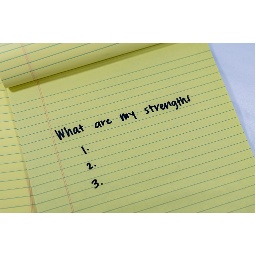 What are my strengths
1.
2.
3.